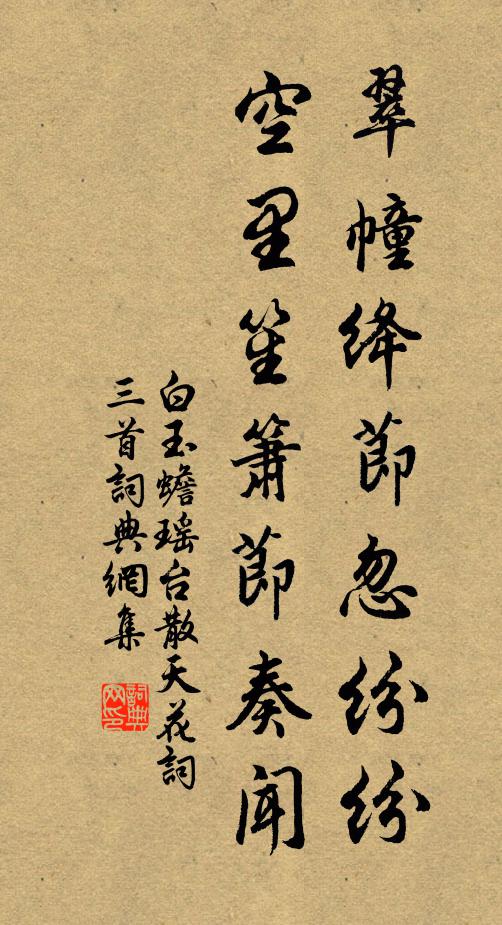 翠幢绛節忽纷纷
空里笙箫節奏闻
白玉蟾瑶台散天花詞
三首詞典網集
詞典网印